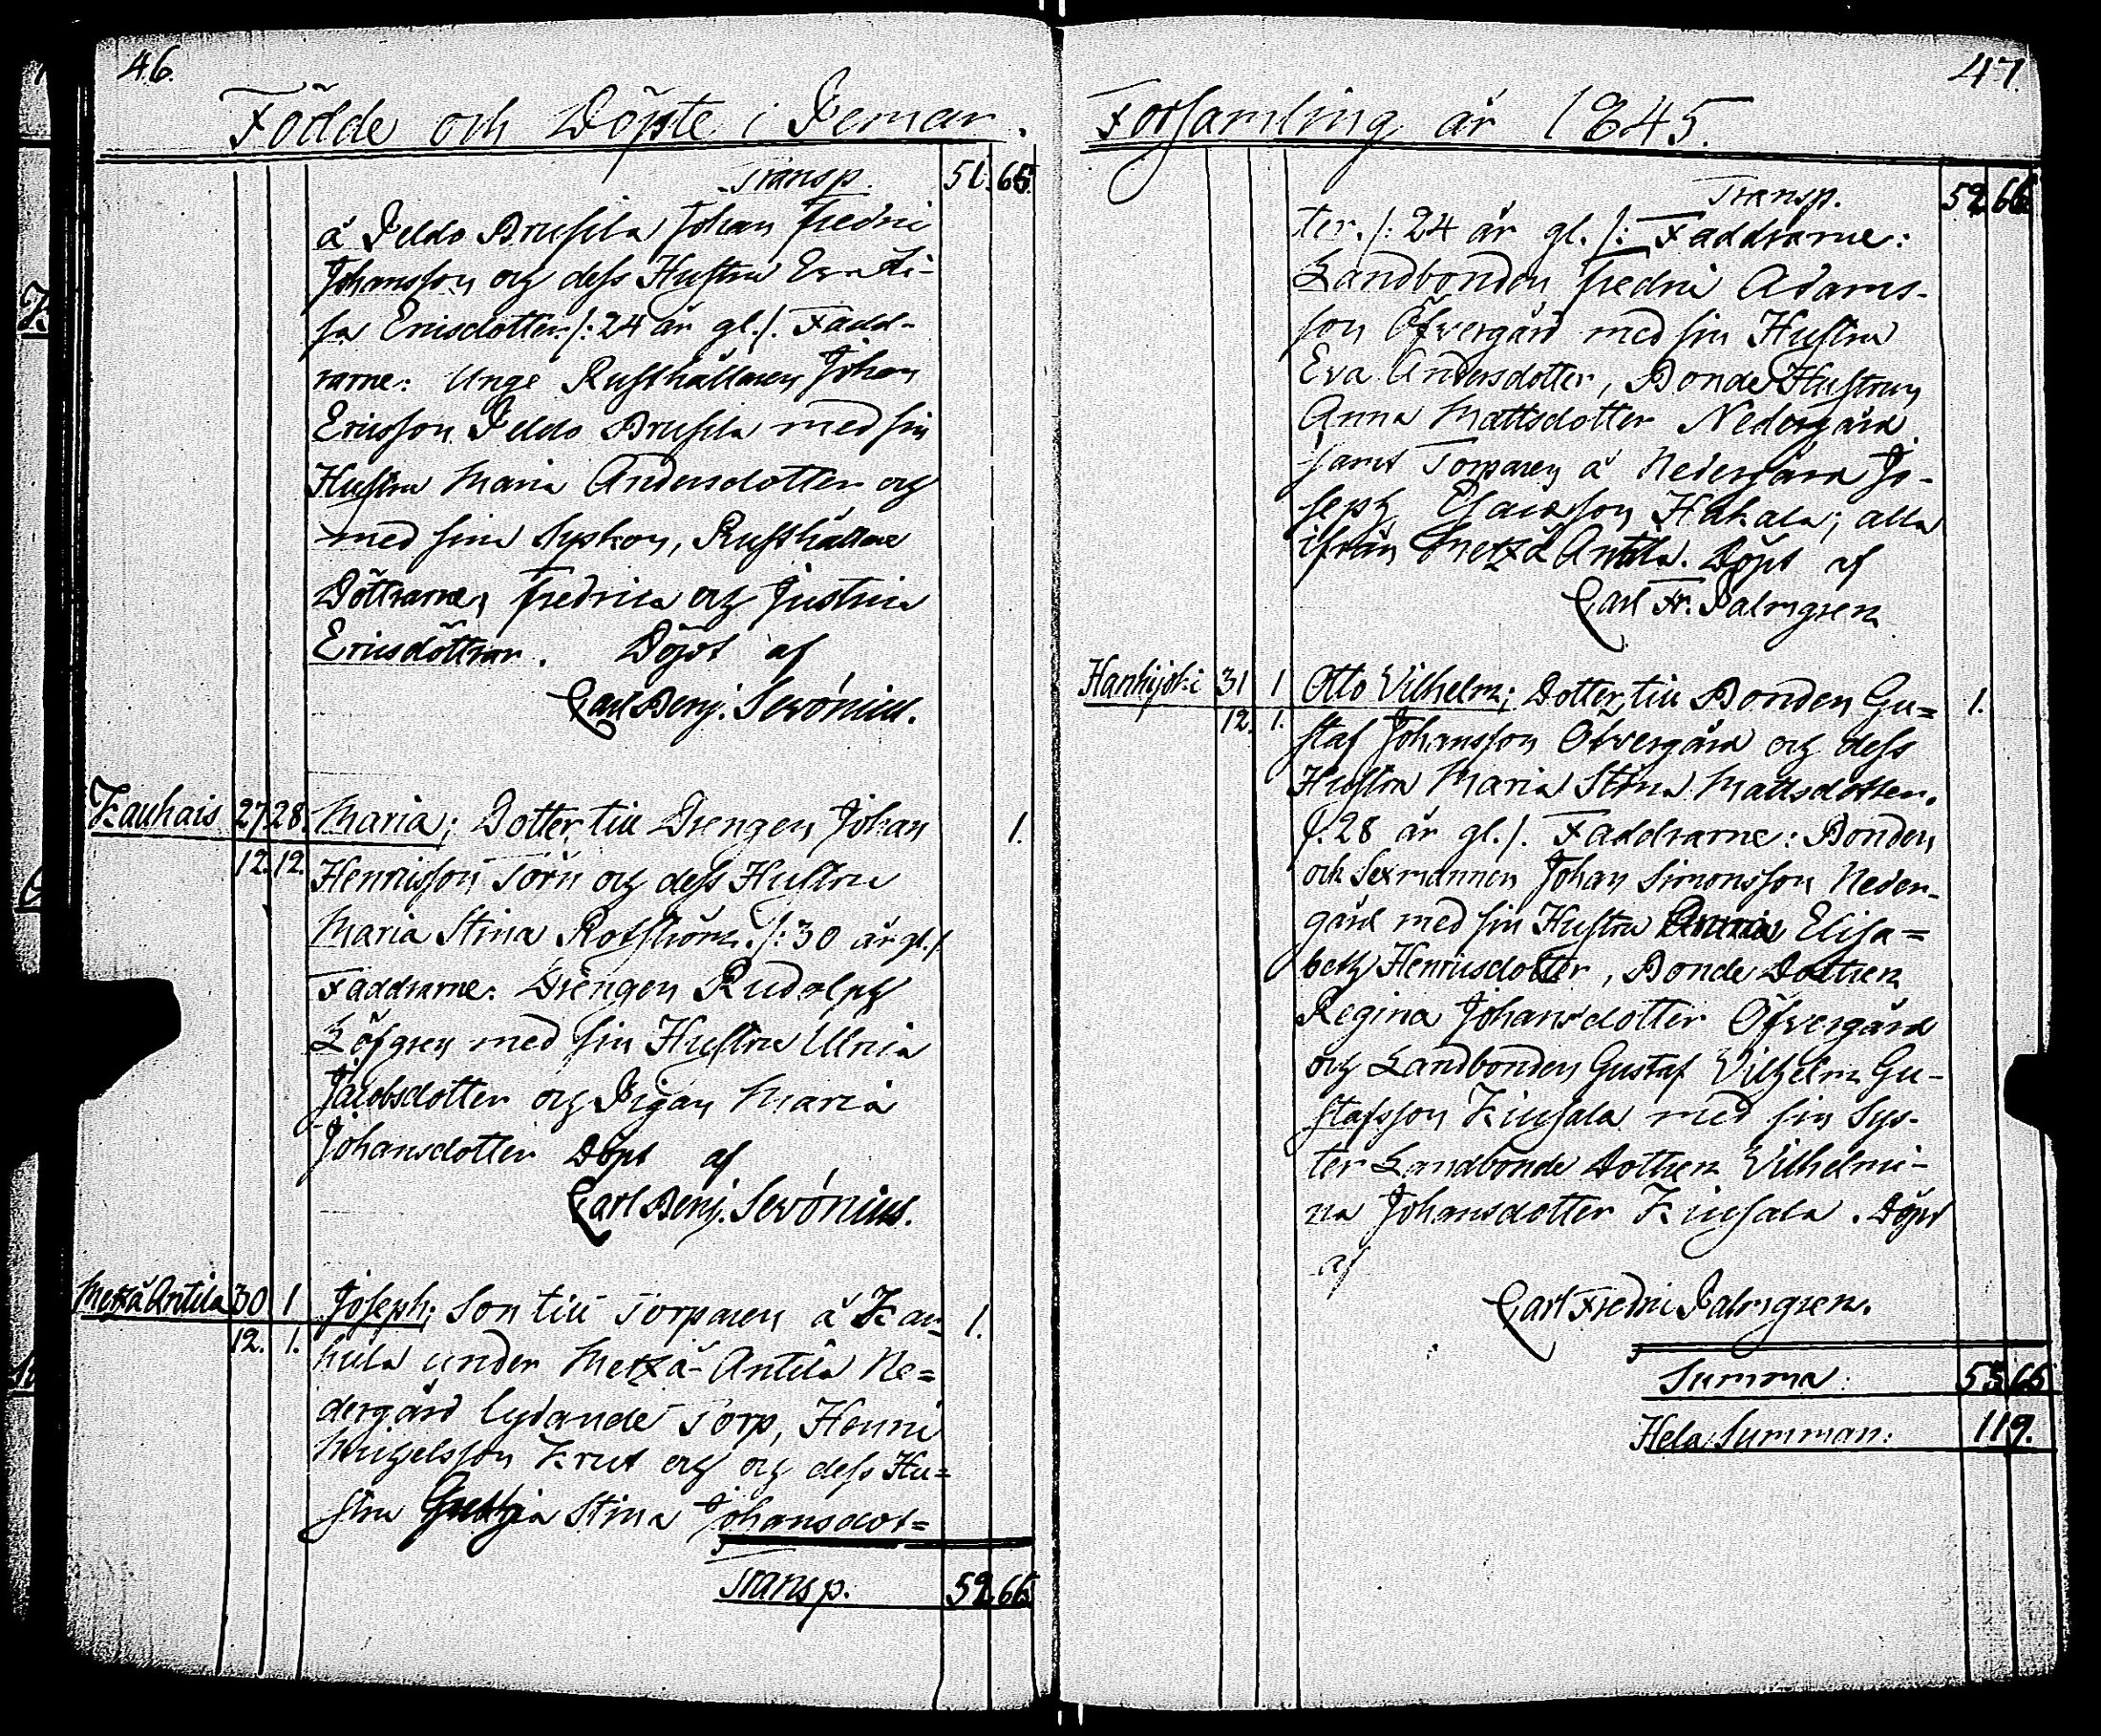 46.
Födde och Döpte i Pemar.
Transp. 51. 65.
å Peldo Brusila Johan Fredric
Johansson och dess Hustru Eva Li-
sa Ericsdotter /: 24 år gl. /. Fadd-
rarne: Unge Rusthållaren Johan
Ericsson Peldo Brusila med sin
Hustru Maria Andersdotter och
med sina Syskon, Rusthållare
Döttrarne, Fredrica och Justina
Ericsdöttrar. Döpt af
Carl Benj. Serónius.
Kauhais 27 28. Maria; Dotter till Drengen Johan 1.
12. 12. Henricsson Törn och dess Hustru
Maria Stina Rotström. /: 30 år gl. /.
Faddrarne: Drengen Rudolph
Löfgren med sin Hustru Ulrica
Jacobsdotter och Pigan Maria
Johansdotter Döpt af
Carl Benj. Serónius.
Metzä Antila 30 1 Joseph; Son till Torparen å Kan- 1.
12. 1. hula under Metzä-Antila Ne=
dergård lydande Torp, Henric
Michelsson Krut och och dess Hu=
stru Stina Johansdot=
Transp. 52. 66.
47.
Församling år 1845.
Transp. 52. 66.
ter. /: 24 år gl. /: Faddrarne:
Landbonden Fredric Adams-
son Öfvergård med sin Hustru
Eva Andersdotter, Bonde Hustrun
Anna Mattsdotter Nedergård
samt Torparen å Nedergård Jo-
seph Esaiasson Hakala; alla
ifrån Metzä Antila. Döpt af
Carl Fr. Palmgren
Hanhijoki 31 1 Otto Vilhelm; Dotter, till Bonden Gu= 1.
12. 1. staf Johansson Öfvergård och dess
Hustru Maria Stina Mattsdotter.
/: 28 år gl. /. Faddrarne: Bonden
och Sexmannen Johan Simonsson Neder-
gård med sin Hustru Elisa=
beth Henricsdotter, Bonde Dottren
Regina Johansdotter Öfvergård
och Landbonden Gustaf Vilhelm Gu-
stafsson Kiusala med sin Sys-
ter Landbonde Dottren Vilhelmi-
na Johansdotter Kiusala. Döpt
af
Carl Fredric Palmgren.
Summa: 53 66
Hela Summan: 119.